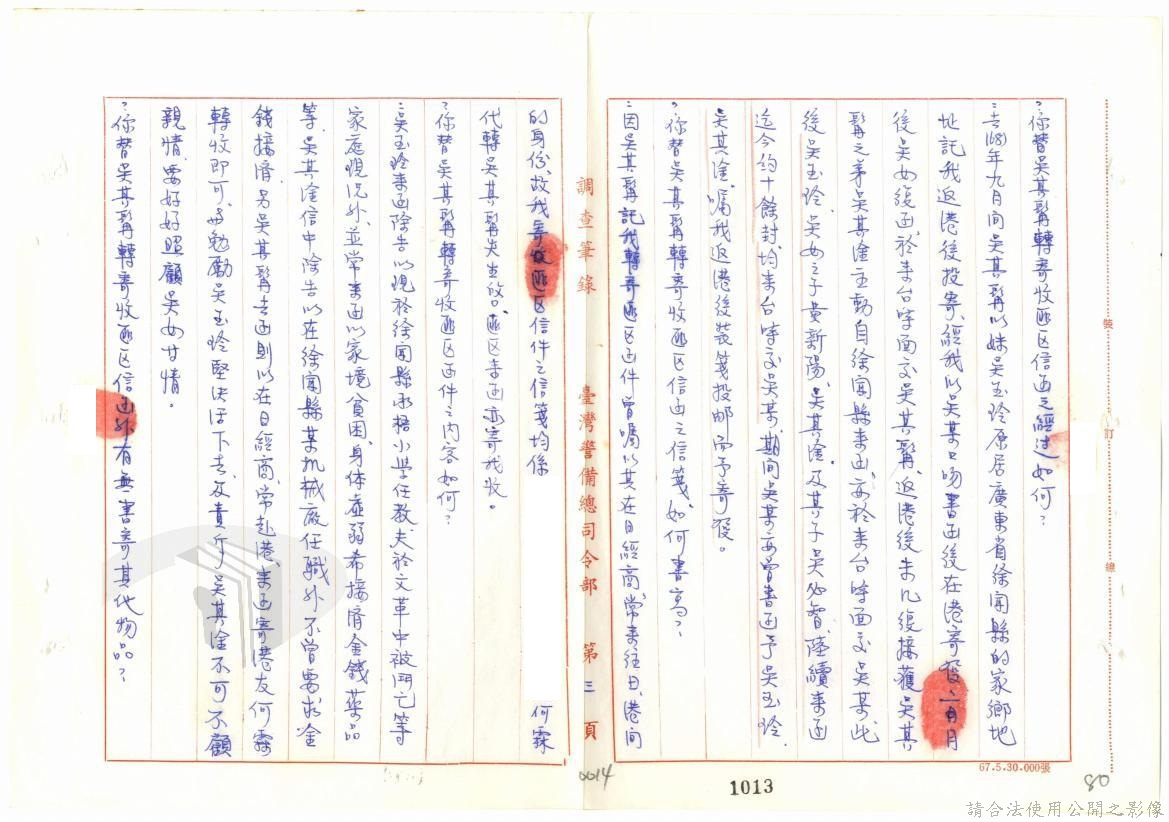 ？你替吳其髯轉寄收匪区信函之經过如何？
：去(68)年九月间吳其髯以妹吳玉玲原居廣東省徐聞縣的家鄉地
址託我返港後投寄、經我以吳某口吻書函後在港寄投、二個月
後吳女復函、於来台時面交吳其髯、返港後未几復接獲吳其
髯之弟吳其淦主動自徐聞縣来函、再於来台時面交吳某、此
後吳玉玲、吳女之子黃新陽、吳其淦、及其子吳必智、陸續来函
迄今約十餘封、均来台時交吳某、期间吳某每曾書函予吳玉玲、
吳其淦、囑我返港後裝箋投邮而予寄發。
？你替吳其髯轉寄收匪区信函之信箋、如何書寫？
：因吳其髯託我轉寄匪区函件曾囑以其在日經商、常来往日、港间
調查筆錄 臺灣警備總司令部 第三頁
的身份、故我寄收匪区信件之信箋均係 何霖
代轉吳其髯先生啟、匪区来函亦寄我收。
？你替吳其髯轉寄收匪区函件之内容如何？
：吳玉玲来函除告以現於徐聞縣 小学任教、夫於文革中被鬥亡等
家庭現況外、並常来函以家境貧困、身体虛弱希接济金錢藥品
等、吳其淦信中除告以在徐聞縣某机械廠任職外不曾要求金
錢接济、另吳其髯去函則以在日經商、常赴港、来函寄港友何霖
轉收即可、每勉勵吳玉玲堅決活下去、及責斥吳其淦不可不顧
親情、要好好照顧吳女甘情。
？你替吳其髯轉寄收匪区信函外有無書寄其他物品？
裝
訂
線
67.5.30.000張
0014
1013
80
請合法使用公開之影像